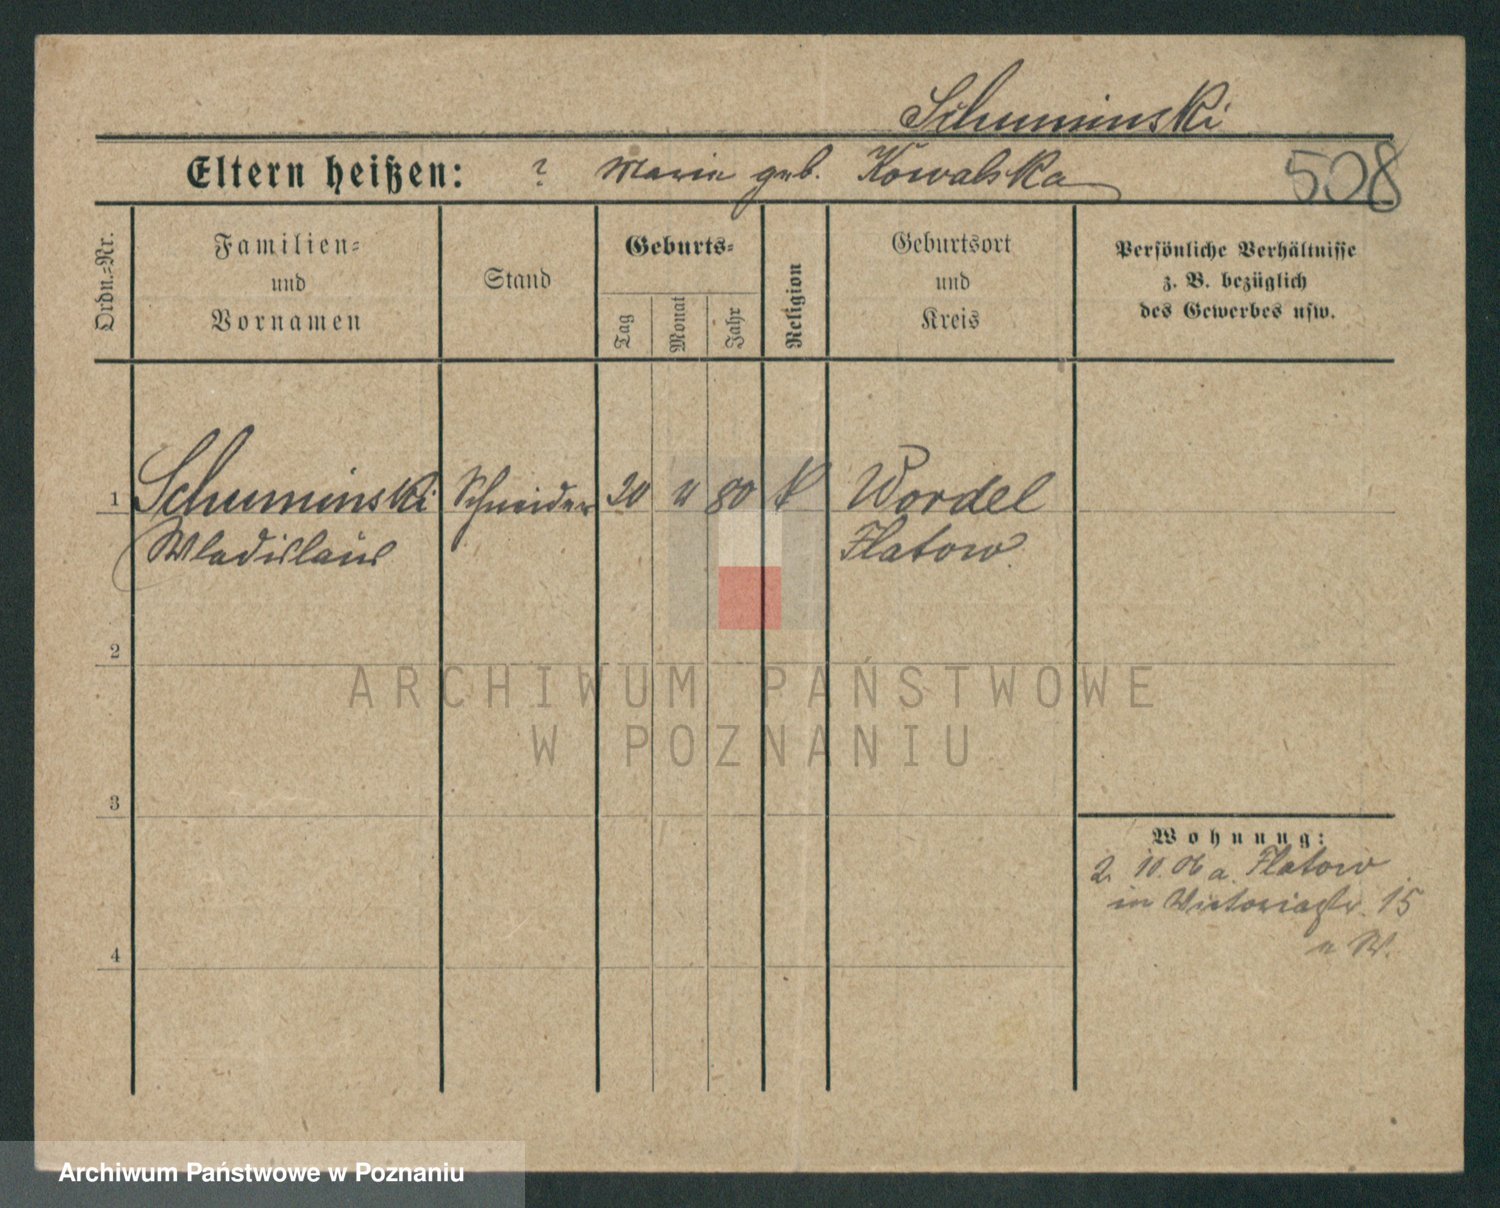 Schuminski
Eltern heißen: ? Marie geb. Kowalska
508
Ordn.=Nr.
Familien=
und
Vornamen
Stand
Geburts=
Tag
Monat
Jahr
Religion
Geburtsort
und
Kreis
Persönliche Verhältnisse
z. B. bezüglich
des Gewerbes usw.
1 Schuminski Schneider 20 11 80 k Wordel
Wladislaus Flatow
2
ARCHIWUM PAŃSTWOWE
W POZNANIU
3
Wohnung:
2. 10. 06 a. Flatow
in Victoriastr. 15
4
Archiwum Państwowe w Poznaniu